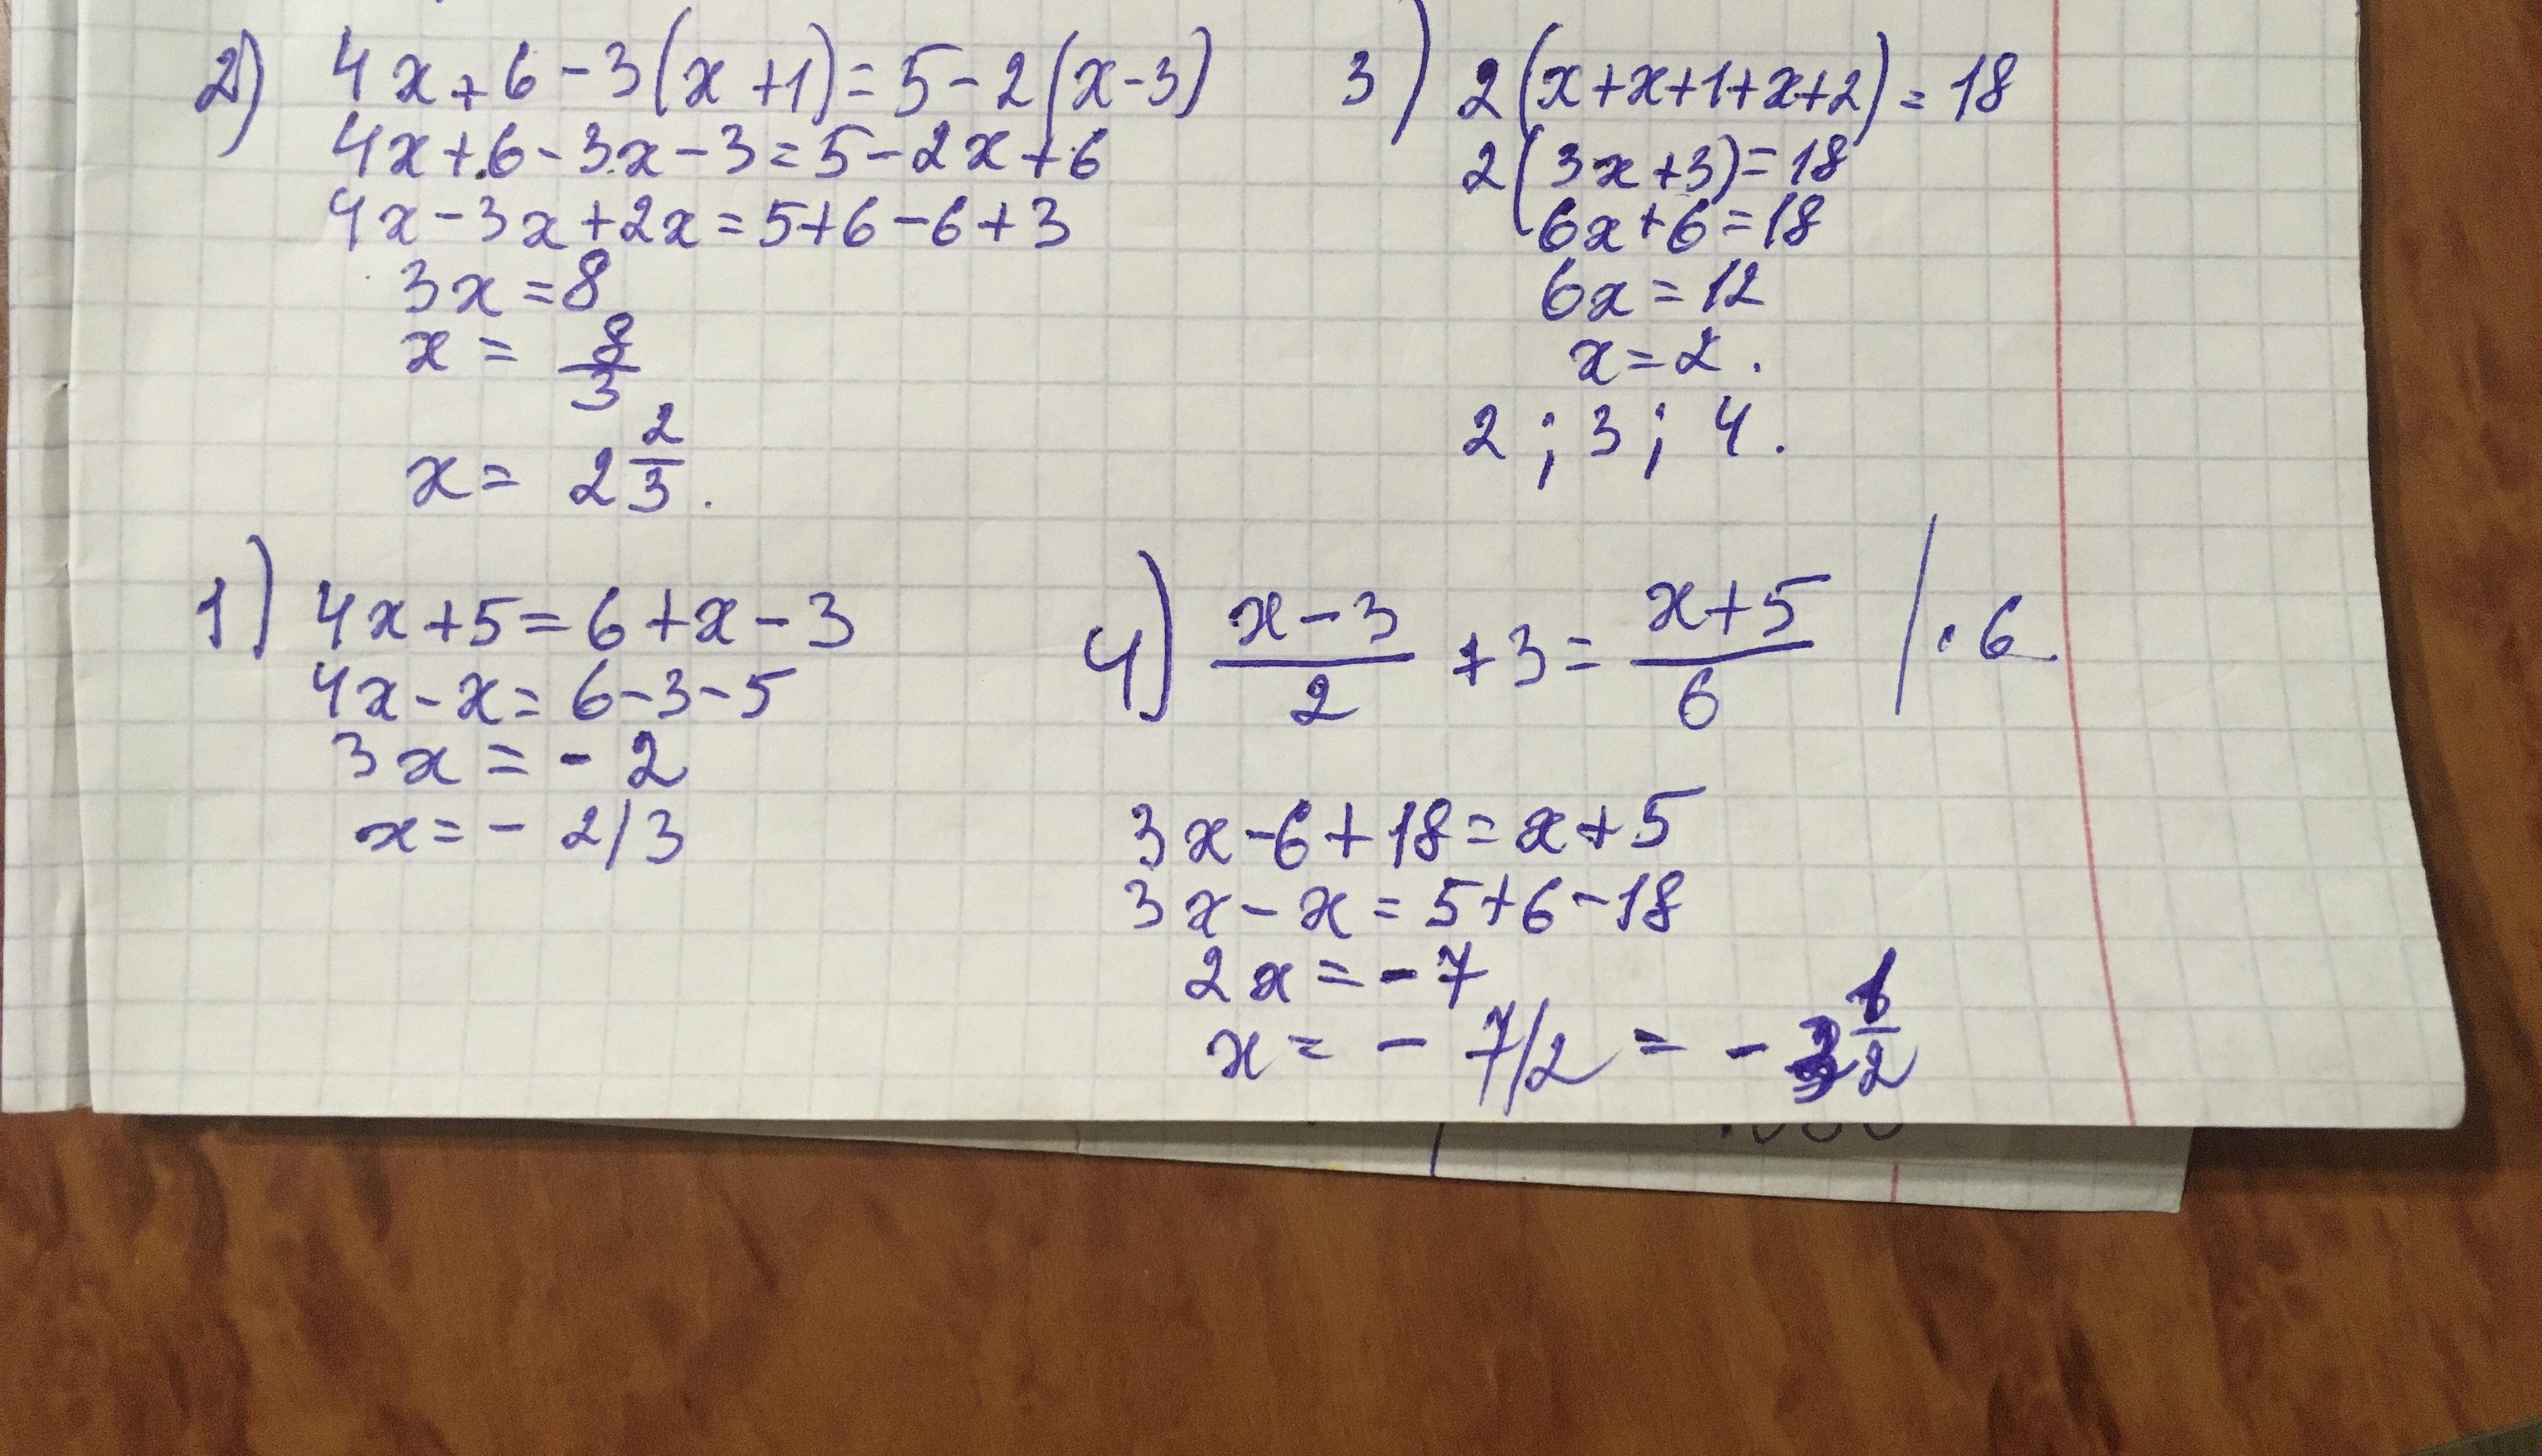 2) 4x+6-3(x+1)=5-2(x-3)
4x+6-3x-3=5-2x+6
4x-3x+2x=5+6-6+3
3x=8
x=8/3
x=2 2/3.
3) 2(x+x+1+x+2)=18
2(3x+3)=18
6x+6=18
6x=12
x=2.
2; 3; 4.
1) 4x+5=6+x-3
4x-x=6-3-5
3x=-2
x=-2/3
4) (x-3)/2 +3= (x+5)/6 /·6.
3x-6+18=x+5
3x-x=5+6-18
2x=-7
x=-7/2=-3 1/2